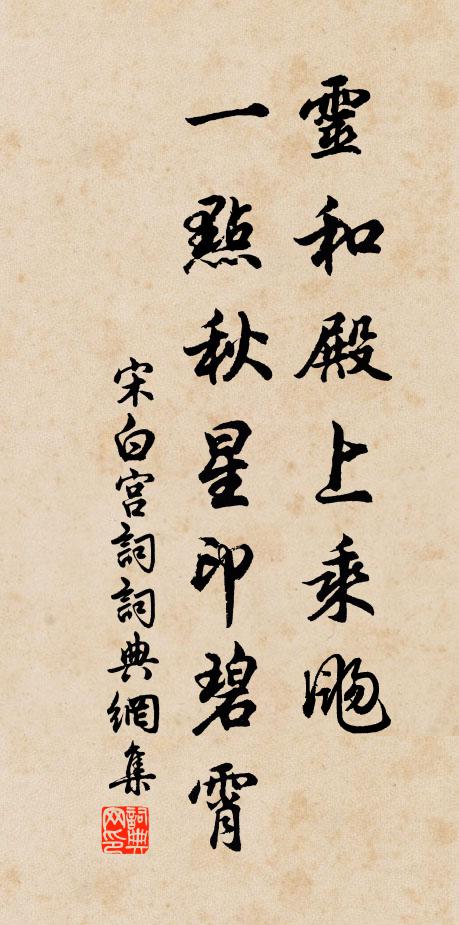 靈和殿上乘飔
一點秋星印碧霄
宋白宮詞詞典網集
詞典网印